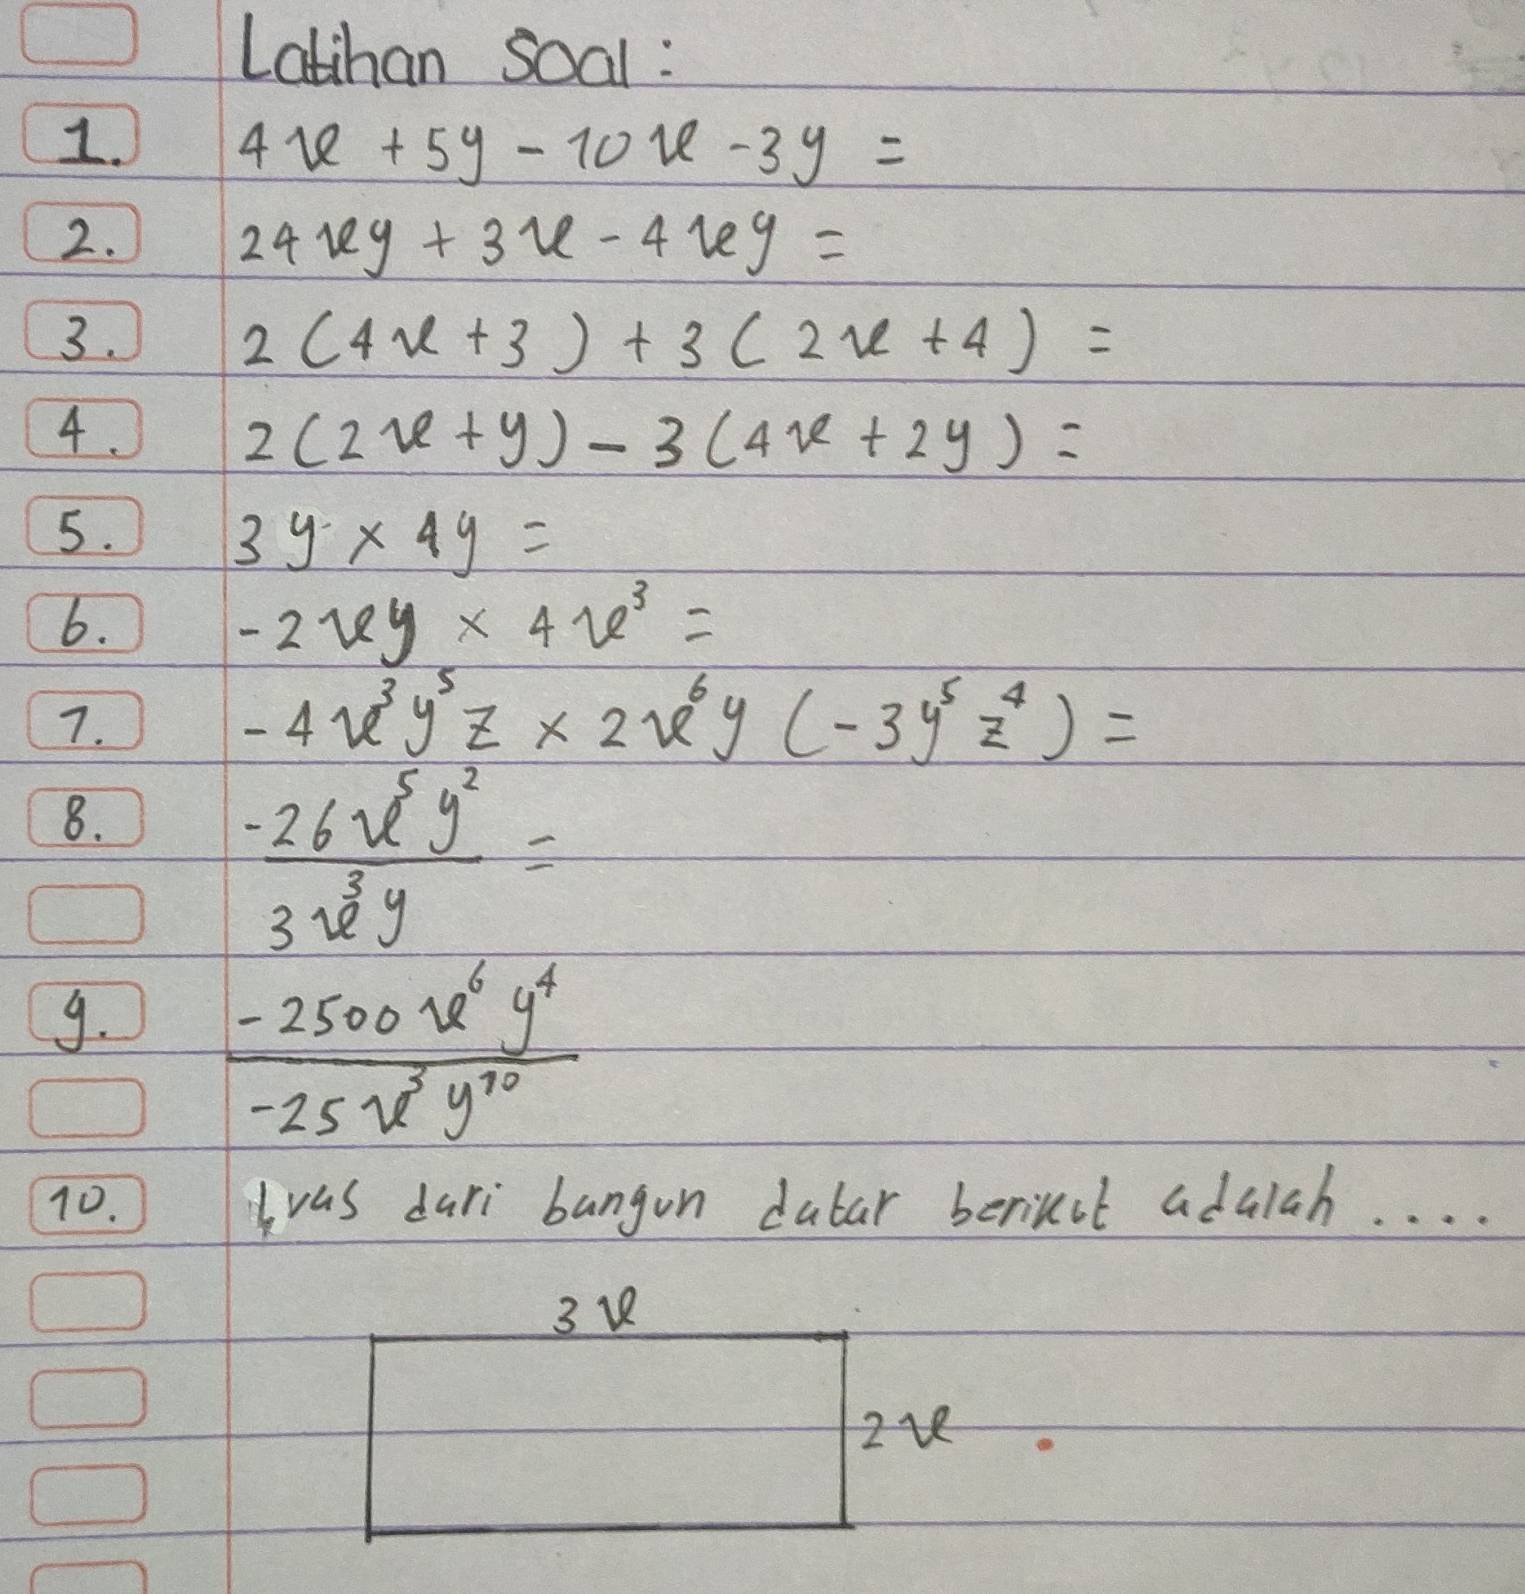 Latihan Soal :
1. 4x + 5y - 10x - 3y =
2. 24xy + 3x - 4xy =
3. 2 ( 4x + 3 ) + 3 ( 2x + 4 ) =
4. 2 ( 2x + y ) - 3 ( 4x + 2y ) =
5. 3y × 4y =
6. -2xy × 4x³ =
7. -4x³y⁵z × 2x⁶y ( -3y⁵z⁴ ) =
8. -26x⁵y² =
3x³y
9. -2500x⁶y⁴
-25x³y¹⁰
10. Luas dari bangun datar berikut adalah ....
3x
2x